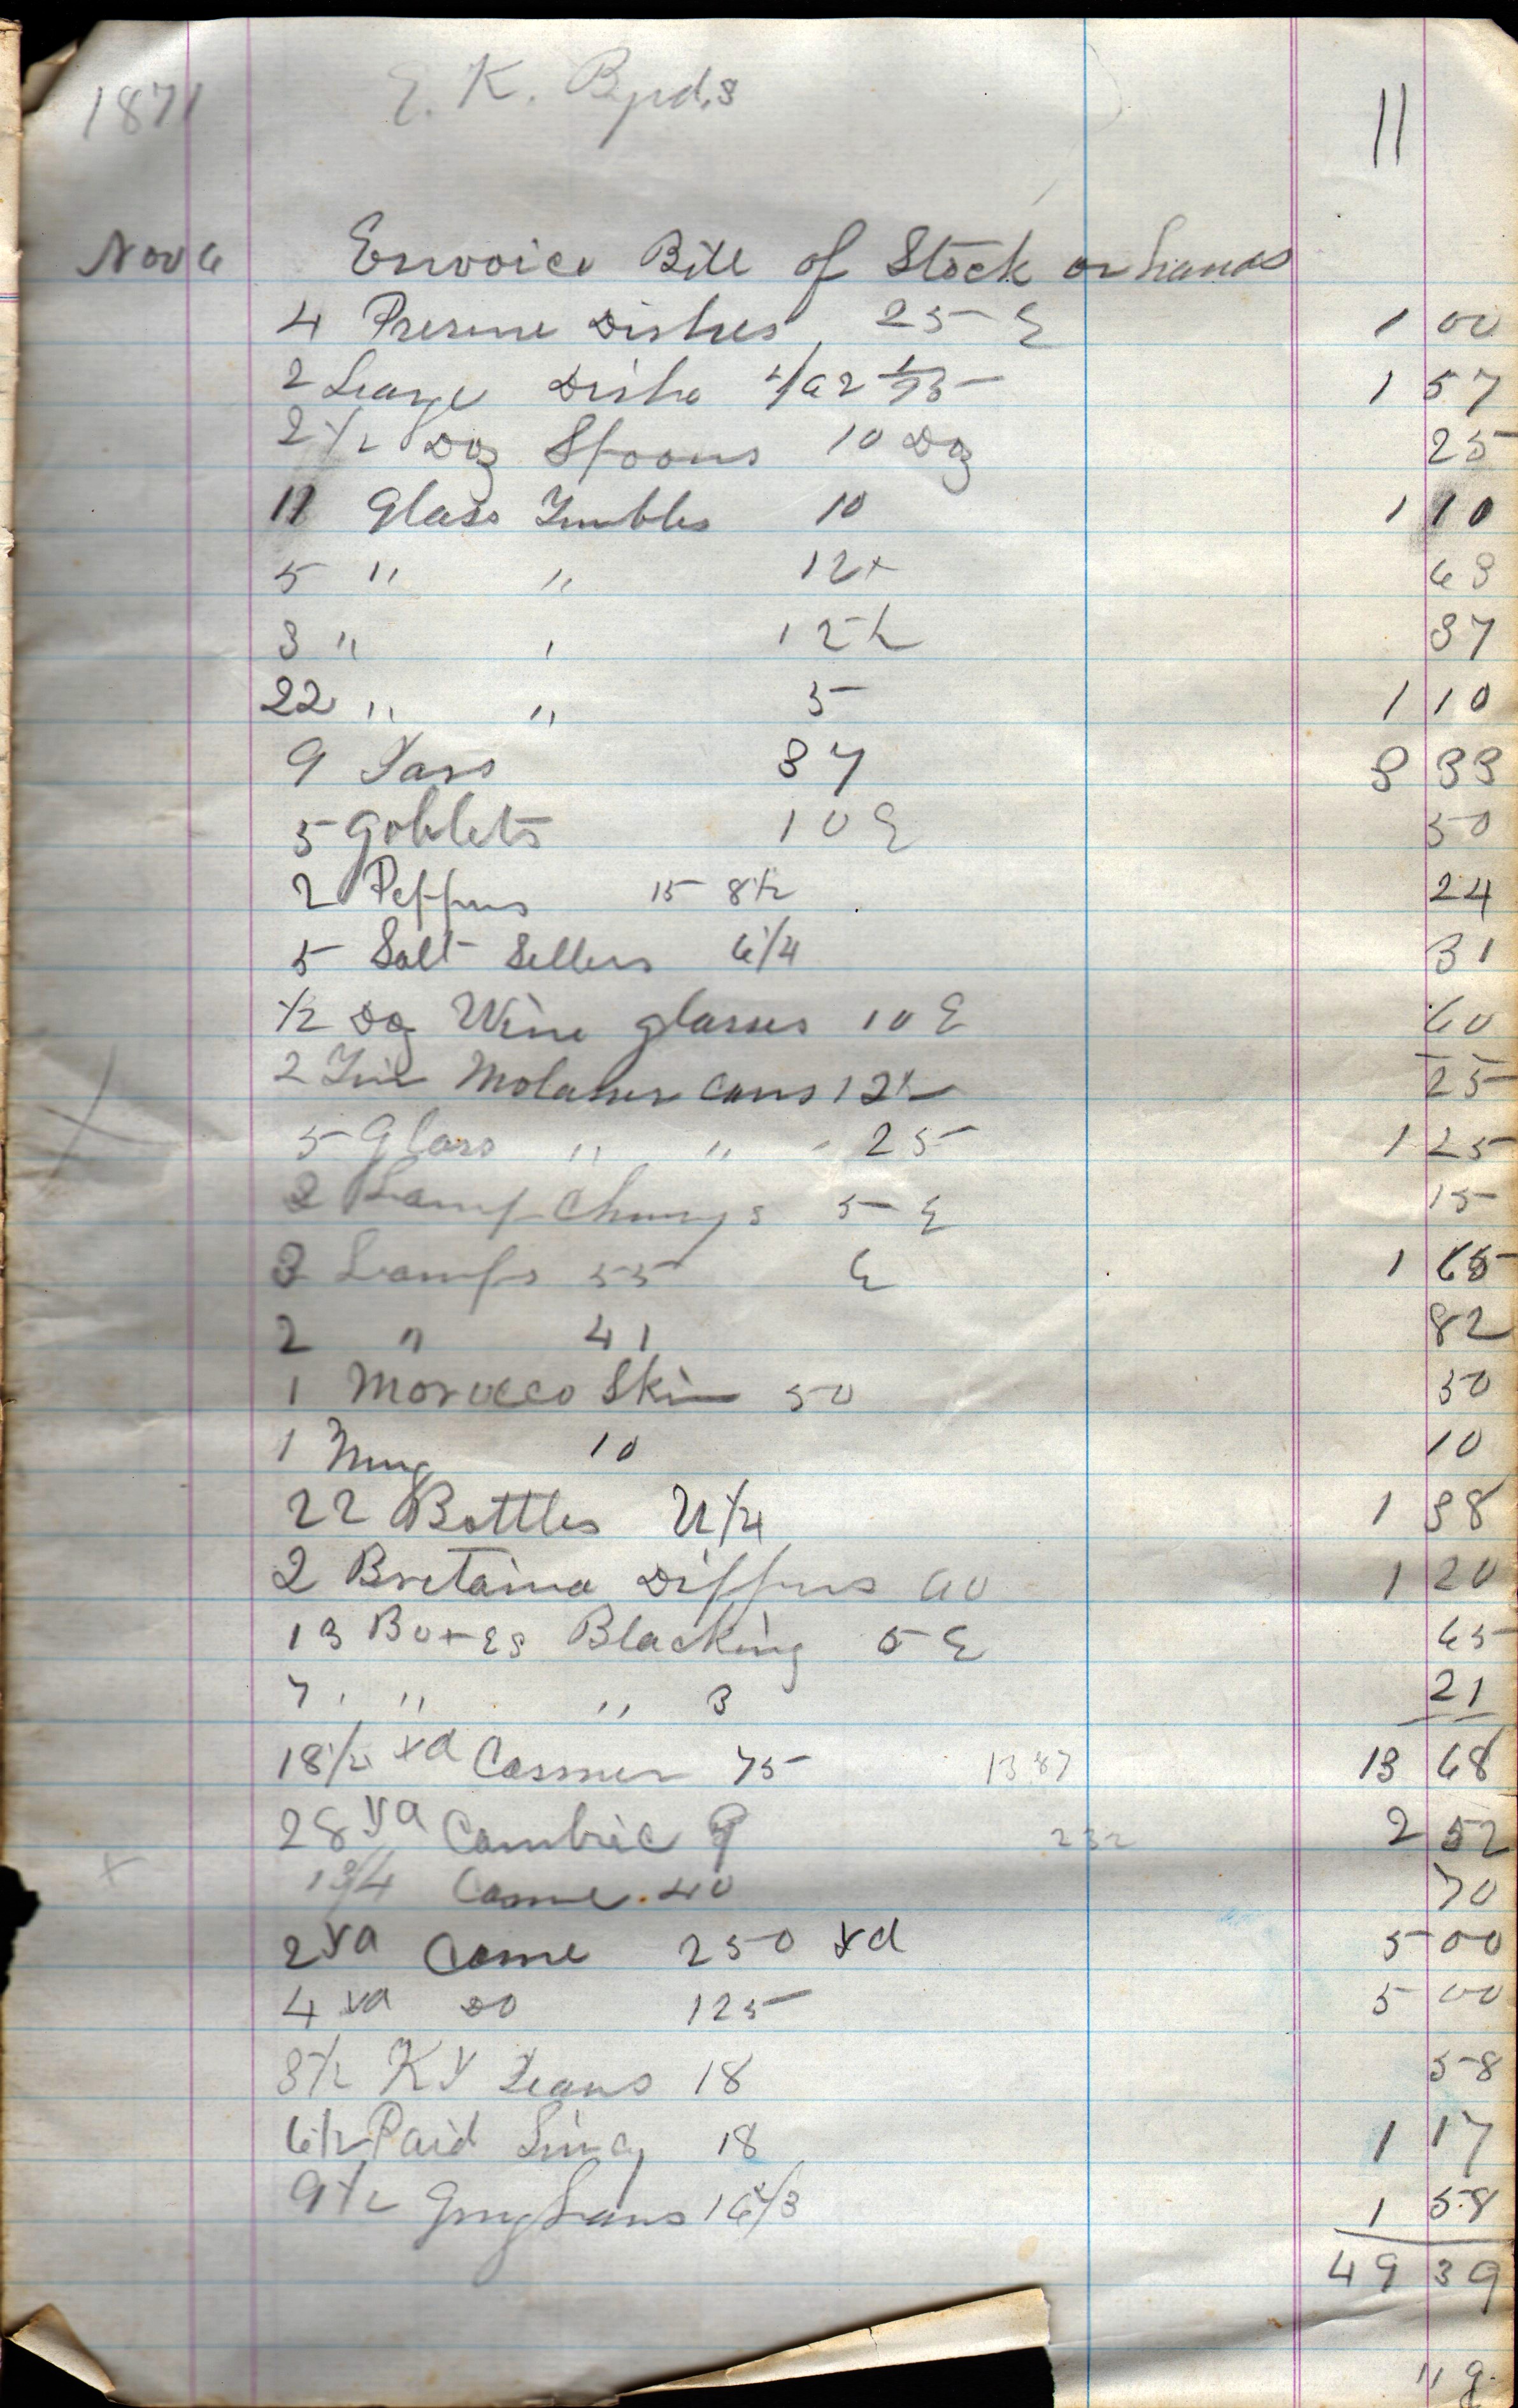 1871 E. K. Byrd,s 11
Nov 6 Envoice Bill of Stock on hands
4 Preserve Dishes 25 E 1 00
2 Large Dishs 1 57
2 1/2 Doz Spoons 10 Doz 25
11 Glass Tumbles 10 1 10
5 " " 12 63
3 " " 12 1/2 37
22 " " 5 1 10
9 Jars 37 3 33
5 Goblets 10 E 50
2 Peppers 15 8 1/2 24
5 Salt Sellers 6 1/4 31
1/2 Doz Wine glasses 10 E 60
2 Tin Molasses Cans 12 1/2 25
5 Glass " " 25 1 25
3 Lamp Chimnys 5 E 15
3 Lamps 55 E 1 65
2 " 41 82
1 Morocco Skin 50 50
1 Mug 10 10
22 Bottles 1/4 1 38
2 Bretania Dippers 60 1 20
13 Boxes Blacking 5 E 65
7 " " 3 21
18 1/2 yd Casmer 75 13 87 13 68
28 yd Cambric 9 2 32 2 52
1 3/4 Casme 40 70
2 yd Casme 250 yd 5 00
4 yd Do 125 5 00
3 1/2 KY Jeans 18 58
6 1/2 Plaid Lincy 18 1 17
9 1/2 Gray Jeans 16 2/3 1 58
49 39